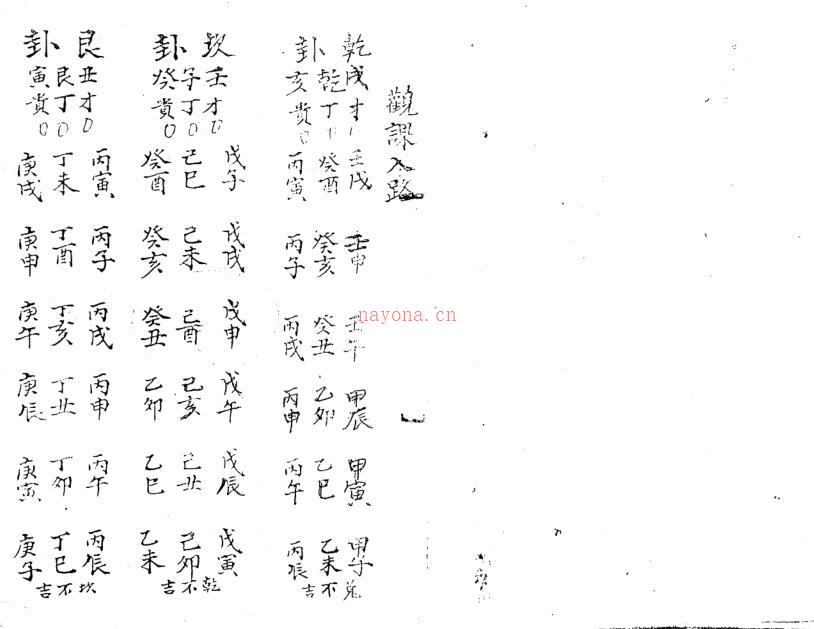 觀課入路
乾卦
戌才0壬戌壬申壬午甲辰甲寅甲子
乾丁0癸酉癸亥癸丑乙卯乙巳乙未
亥貴0丙寅丙子丙戌丙申丙午丙辰
兌不吉
坎卦
壬才0戊子戊戌戊申戊午戊辰戊寅
子丁0己巳己未己酉己亥己丑己卯
癸貴0癸酉癸亥癸丑乙卯乙巳乙未
乾不吉
艮卦
丑才0丙寅丙子丙戌丙申丙午丙辰
艮丁0丁未丁酉丁亥丁丑丁卯丁巳
寅貴0庚戌庚申庚午庚辰庚寅庚子
坎不吉
nayona.cn